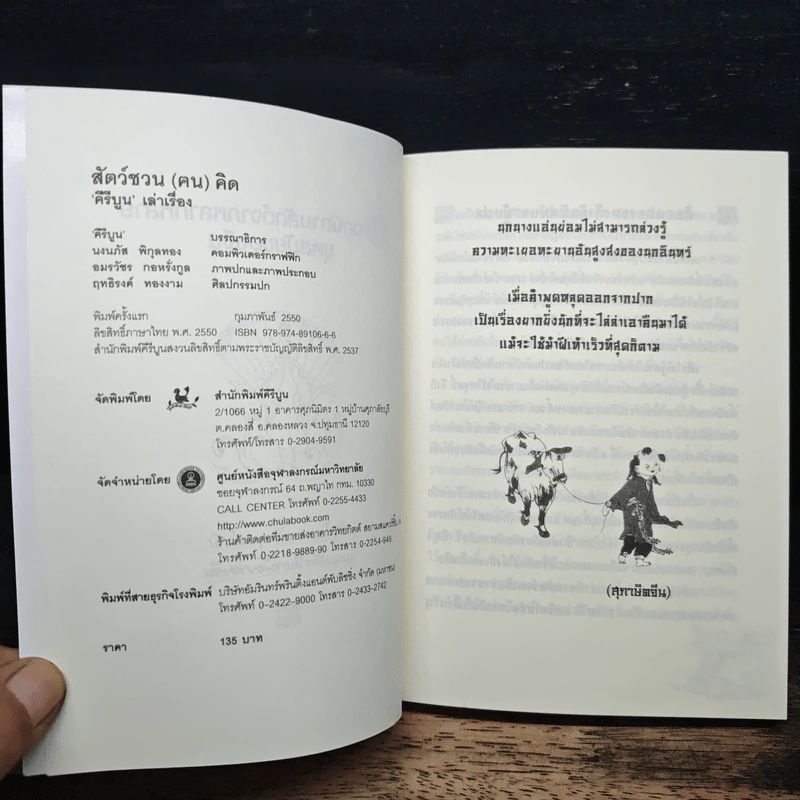 สัตว์ชวน (ฅน) คิด
'คีรีบูน' เล่าเรื่อง
'คีรีบูน' บรรณาธิการ
นงนภัส พิกุลทอง คอมพิวเตอร์กราฟฟิก
อมรวัชร กอหรั่งกูล ภาพปกและภาพประกอบ
ฤทธิรงค์ ทองงาม ศิลปกรรมปก
พิมพ์ครั้งแรก กุมภาพันธ์ 2550
ลิขสิทธิ์ภาษาไทย พ.ศ. 2550 ISBN 978-974-89106-6-6
สำนักพิมพ์คีรีบูนสงวนลิขสิทธิ์ตามพระราชบัญญัติลิขสิทธิ์ พ.ศ. 2537
จัดพิมพ์โดย สำนักพิมพ์คีรีบูน
2/1066 หมู่ 1 อาคารศุภนิมิตร 1 หมู่บ้านศุภาลัยบุรี
ต.คลองสี่ อ.คลองหลวง จ.ปทุมธานี 12120
โทรศัพท์/โทรสาร 0-2904-9591
จัดจำหน่ายโดย ศูนย์หนังสือจุฬาลงกรณ์มหาวิทยาลัย
ซอยจุฬาลงกรณ์ 64 ถ.พญาไท กทม. 10330
CALL CENTER โทรศัพท์ 0-2255-4433
http://www.chulabook.com
ร้านค้าติดต่อทีมขายส่งอาคารวิทยกิตติ์ สยามสแควร์
โทรศัพท์ 0-2218-9889-90 โทรสาร 0-2254-949
พิมพ์ที่สายธุรกิจโรงพิมพ์ บริษัทอัมรินทร์พริ้นติ้งแอนด์พับลิชชิ่ง จำกัด (มหาชน)
โทรศัพท์ 0-2422-9000 โทรสาร 0-2433-2742
ราคา 135 บาท
นกนางแอ่นย่อมไม่สามารถล่วงรู้
ความทะเยอทะยานอันสูงส่งของนกอินทร์
เมื่อคำพูดหลุดออกจากปาก
เป็นเรื่องยากยิ่งนักที่จะไล่ล่าเอาคืนมาได้
แม้จะใช้ม้าฝีเท้าเร็วที่สุดก็ตาม
(สุภาษิตจีน)